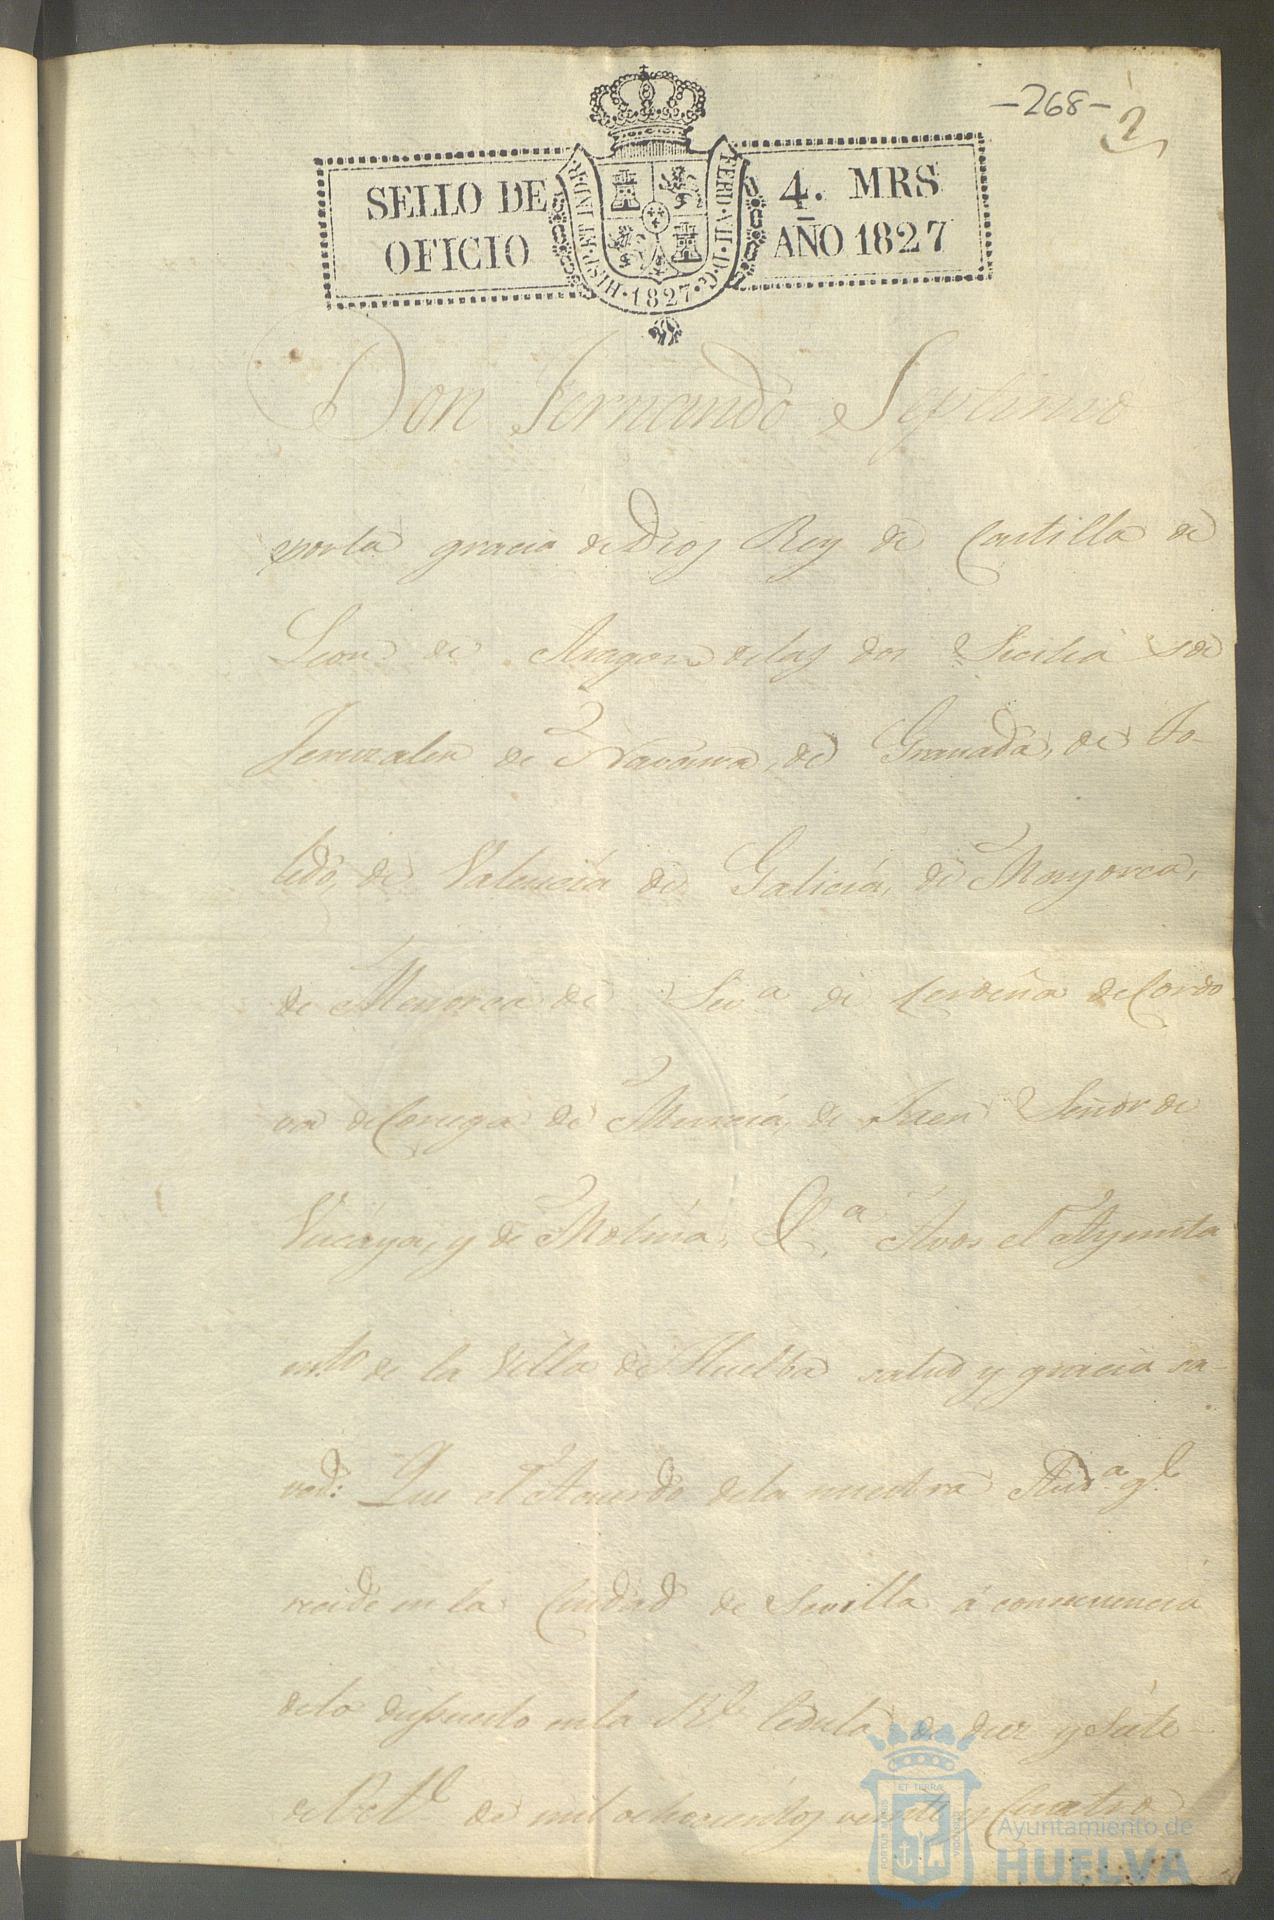 -268-
2
SELLO DE
OFICIO
HISP. ET IND. R. 1827. FERD. VII. D. G.
4. MRS
AÑO 1827
Don Fernando Septimo
por la gracia de Dios Rey de Castilla de
Leon de Aragon delas dos Sicilia de
Jeruzalen de Navarra, de Granada, de To-
ledo, de Valencia de Galicia, de Mayorca,
de Menorca de Sev.a de Cerdeña de Cordo
va de Corcega de Murcia, de Jaen Señor de
Vizcaya, y de Molina, &.a Avos el Ayunta
m.to de la Villa de Huelba salud y gracia sa-
ved: Que el Acuerdo dela nuestra Aud.a q.e
recide en la Ciudad de Sevilla á consecuencia
delo dispuesto enla R.l Cedula de diez y siete
de Oct.e de mil ochocientos veinte y Cuatro
PORTUS MARIS
ET TERRÆ
CUSTODIA
Ayuntamiento de
HUELVA